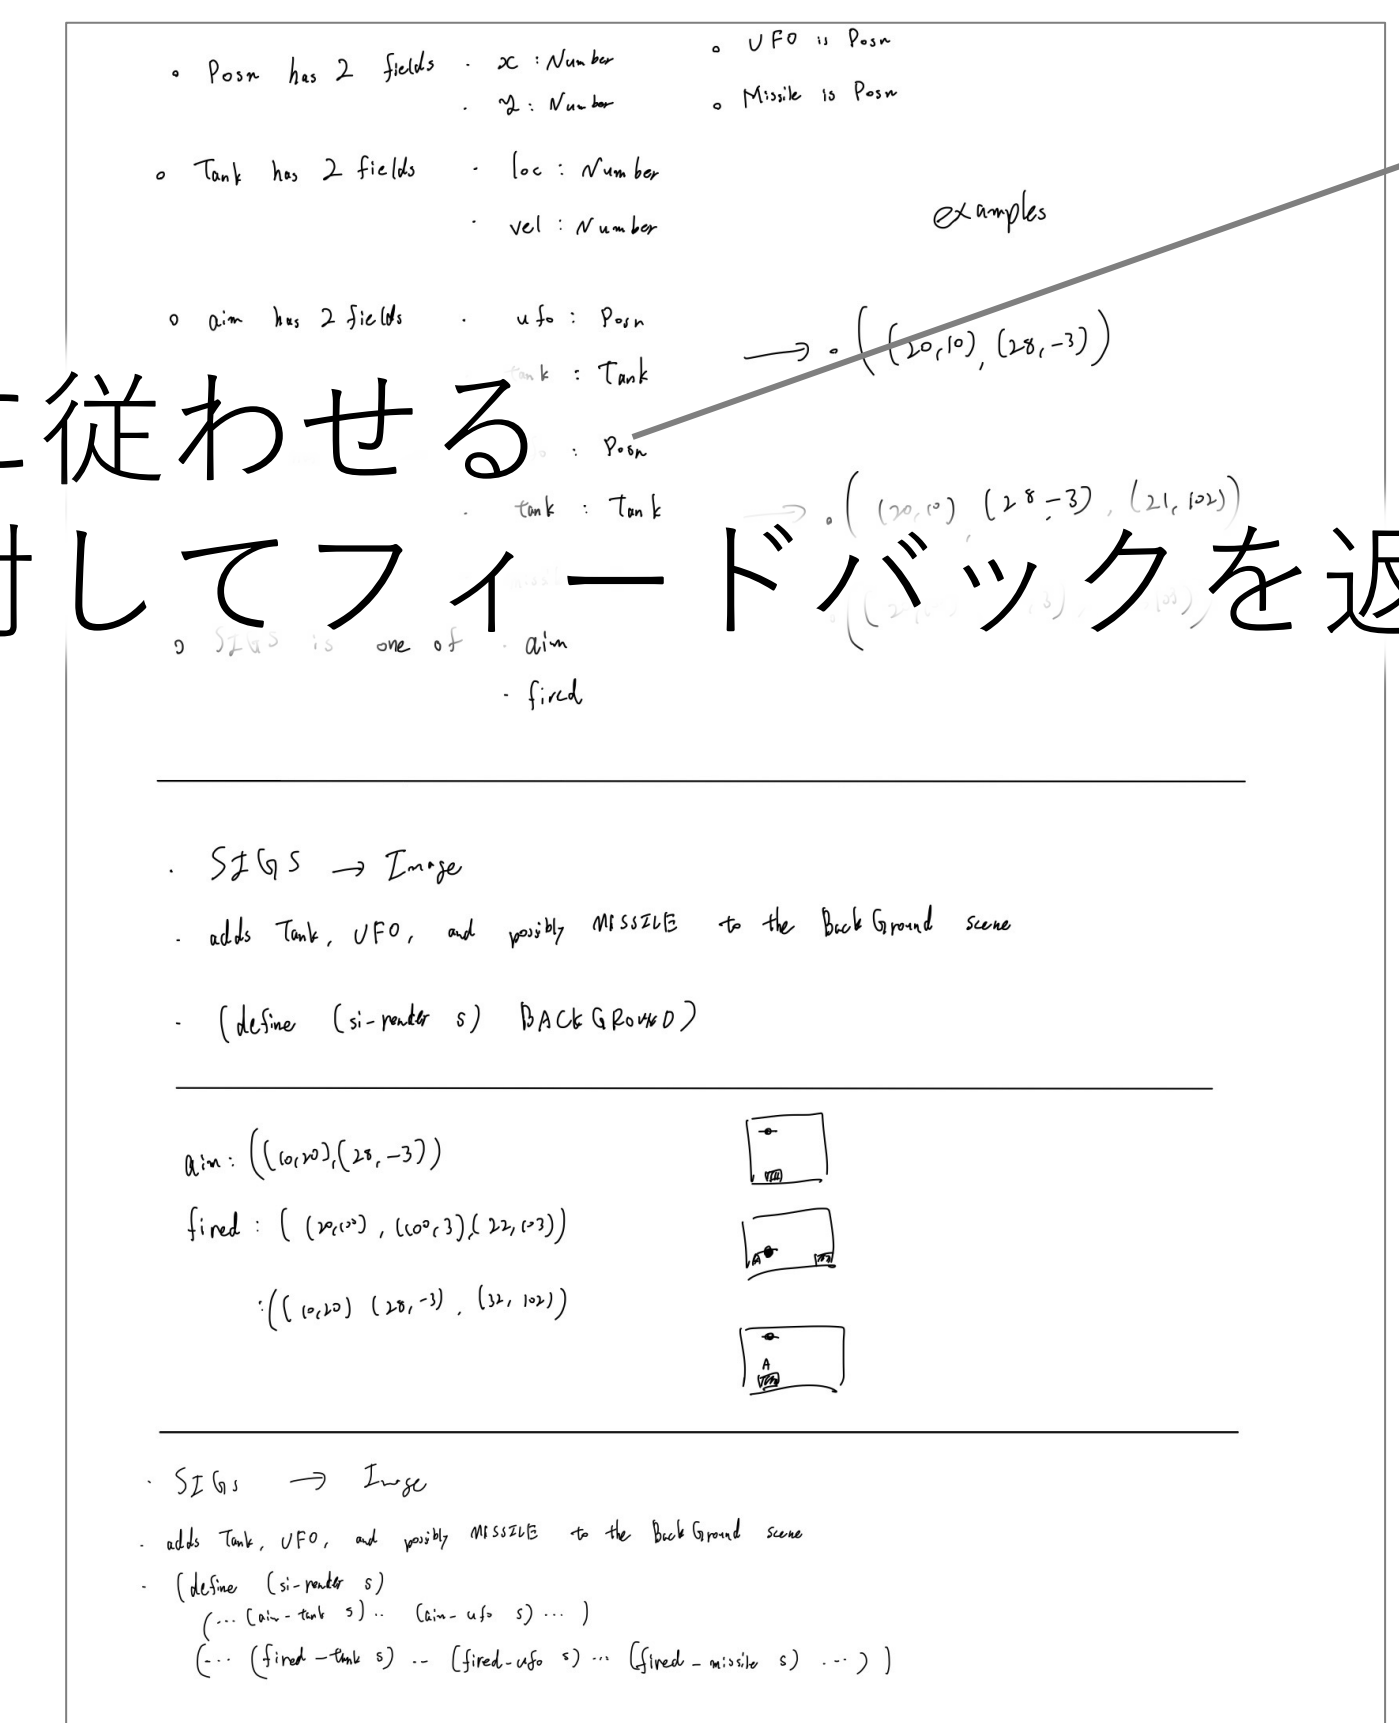 ∘ Posn has 2 fields · x : Number ∘ UFO is Posn
· y : Number ∘ Missile is Posn
∘ Tank has 2 fields · loc : Number
· vel : Number
examples
∘ aim has 2 fields · ufo : Posn → ∘ ((20,10), (28,-3))
tank : Tank
に従わせる
: Posn
· tank : Tank → ∘ ((20,10) (28,-3), (21,102))
対してフィードバックを返
∘ SIGS is one of · aim
· fired
· SIGS → Image
· adds Tank, UFO, and possibly MISSILE to the BackGround scene
· (define (si-render s) BACKGROUND)
aim : ((10,20),(28,-3))
fired : ((20,100), (100,3),(22,103))
: ((10,20) (28,-3), (32,102))
A
A
· SIGS → Image
· adds Tank, UFO, and possibly MISSILE to the BackGround scene
· (define (si-render s)
(... (aim-tank s) .. (aim-ufo s) ... )
(... (fired-tank s) .. (fired-ufo s) ... (fired-missile s) ... ) )